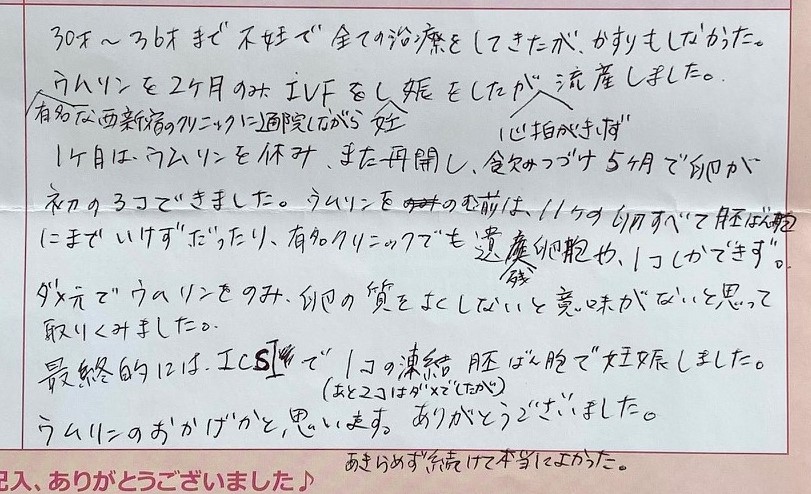 30才〜36才まで不妊で全ての治療をしてきたが、かすりもしなかった。
ウムリンを2ケ月のみIVFをし娠をしたが流産しました。
有名な西新宿のクリニックに通院しながら 妊 心拍がきけず
1ケ月は、ウムリンを休み、また再開し、飲みつづけ5ケ月で卵が
初の3コできました。ウムリンをのむ前は、11ケの卵すべて胚ばん胞
にまでいけずだったり、有名クリニックでも遺卵胞や、1コしかできず。
残
ダメ元でウムリンをのみ、卵の質をよくしないと意味がないと思って
取りくみました。
最終的には、ICSIで1コの凍結胚ばん胞で妊娠しました。
(あと2コはダメでしたが)
ウムリンのおかげかと、思います。ありがとうございました。
あきらめず続けて本当によかった。
記入、ありがとうございました♪